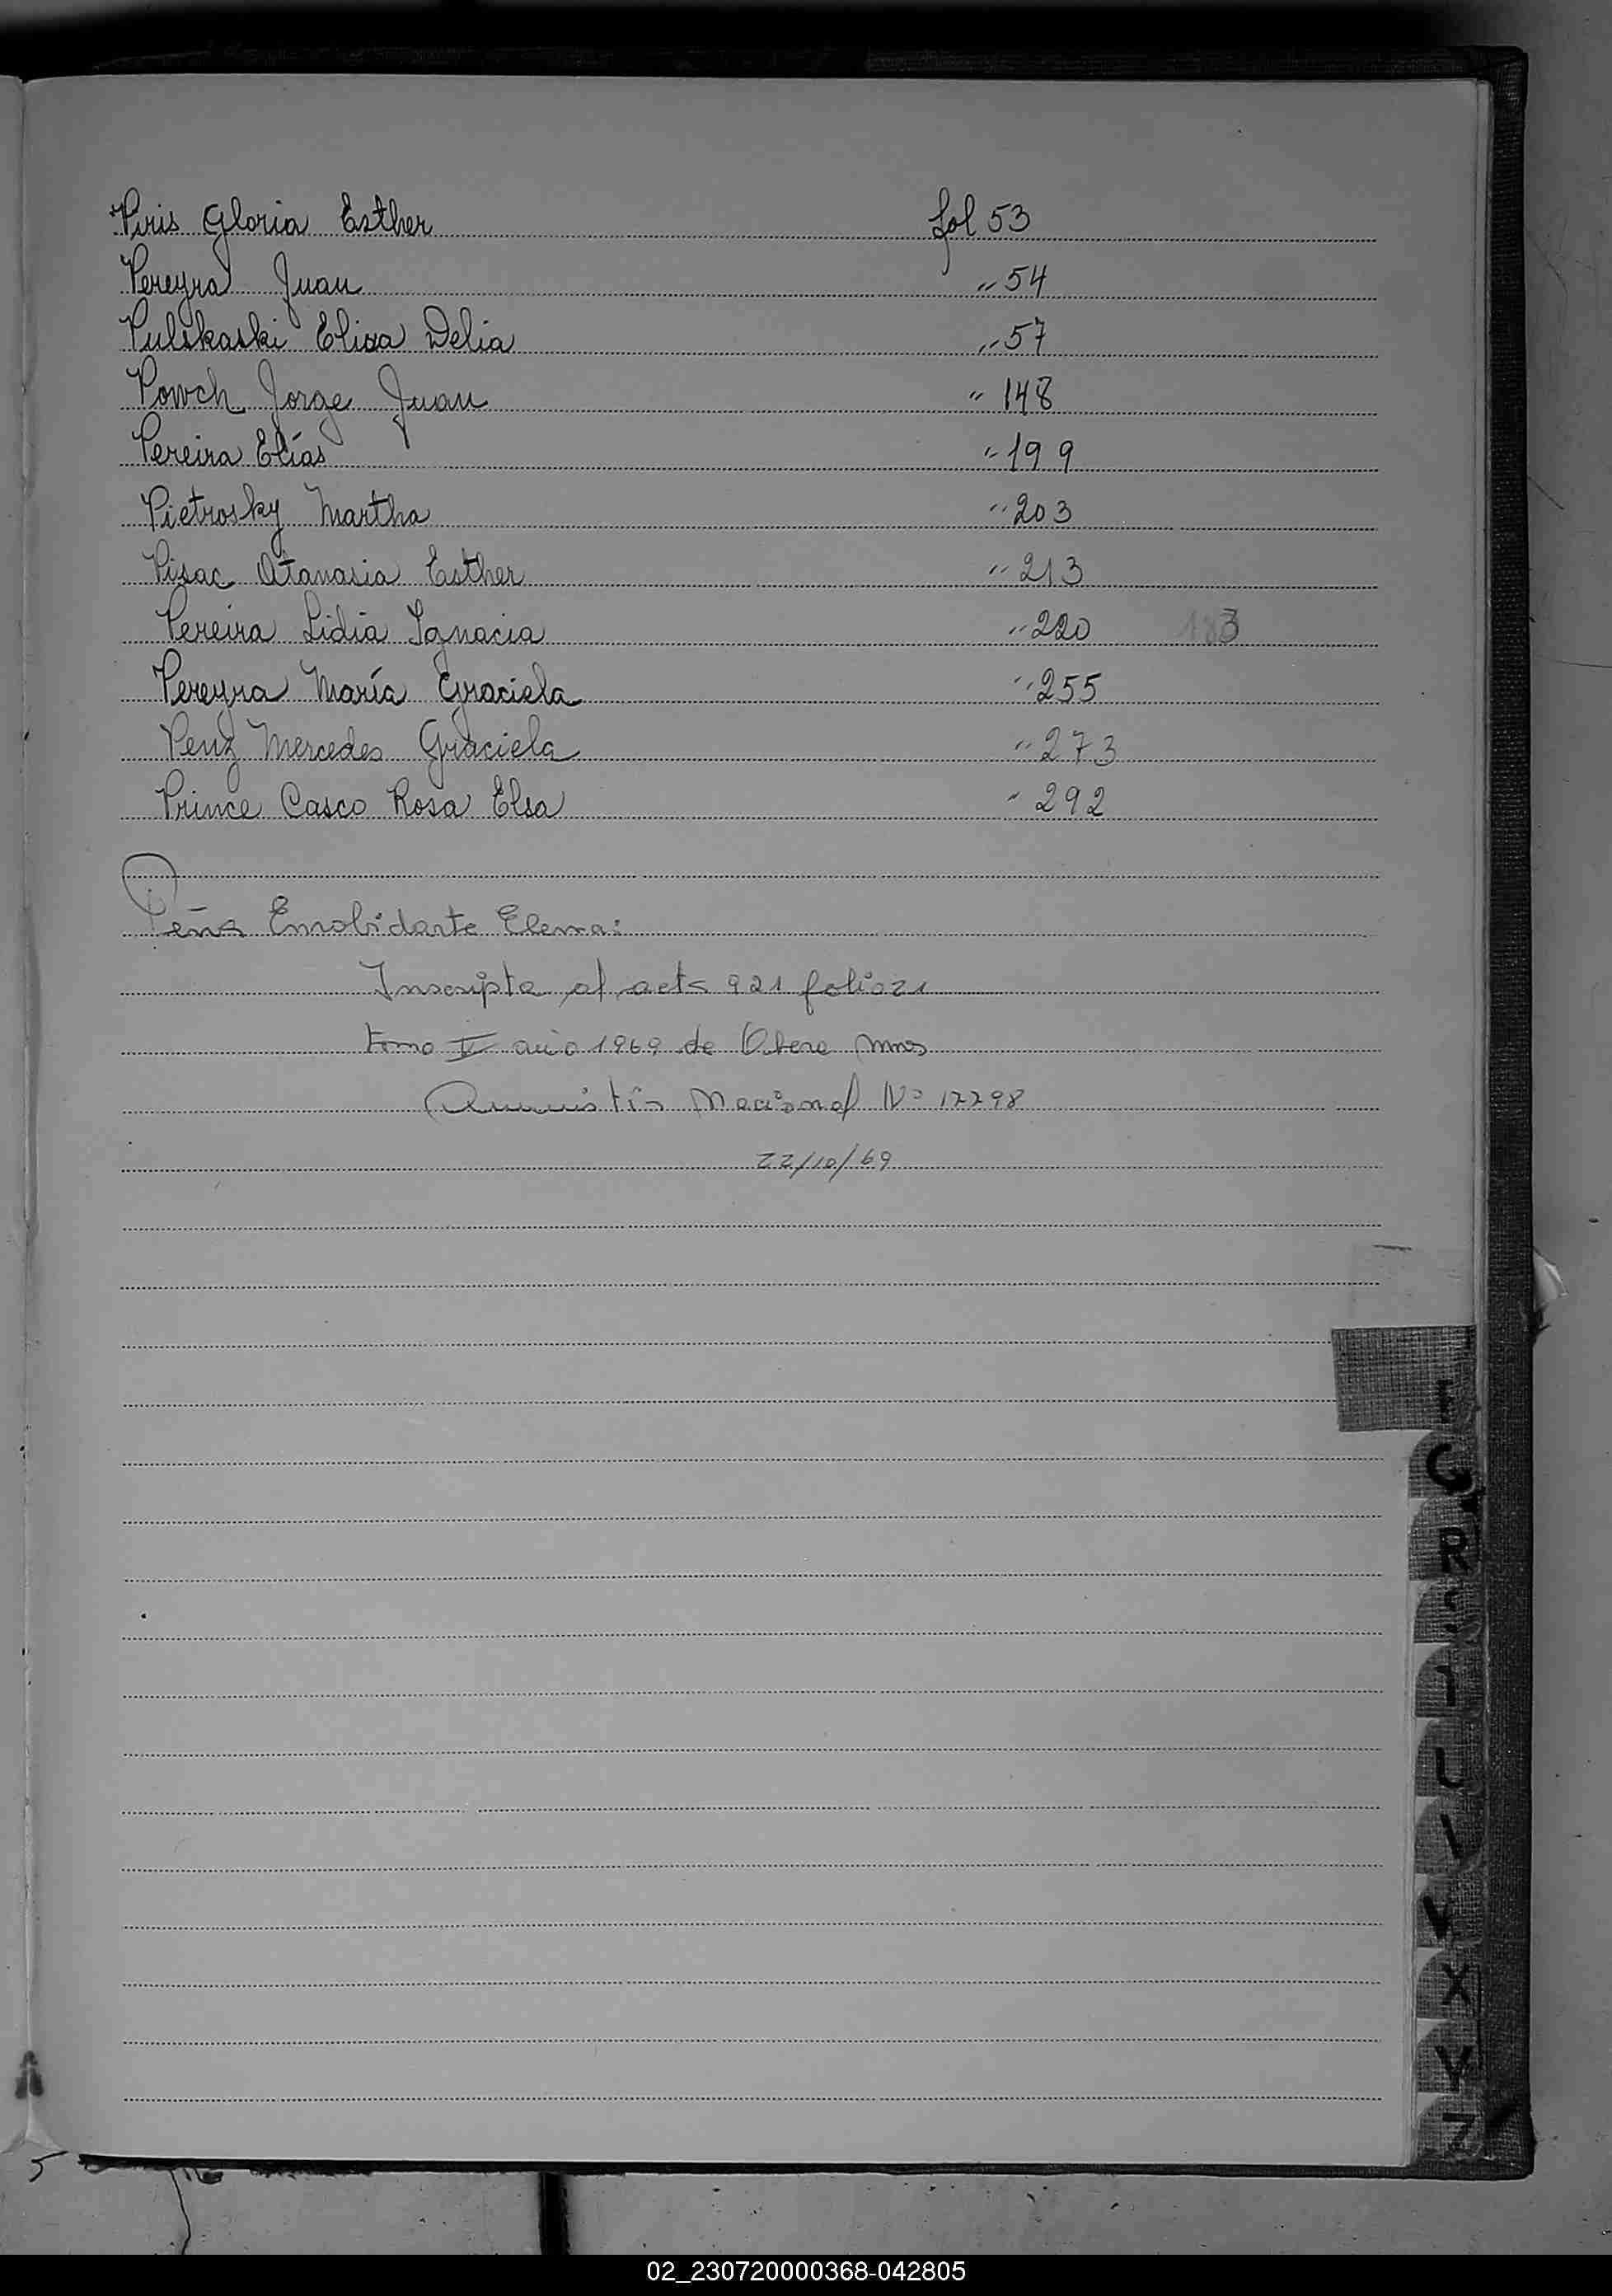 Piris Gloria Esther fol 53
Pereyra Juan " 54
Pulskaski Elisa Delia " 57
Powch Jorge Juan " 148
Pereira Elías " 199
Pietrosky Martha " 203
Pisac Atanasia Esther " 213
Pereira Lidia Ignacia " 220 183
Pereyra María Graciela " 255
Penz Mercedes Graciela " 273
Prince Casco Rosa Elsa " 292
Peña Elena:
Inscripta al acta 921 folio 21
tomo II año 1969 de Obera Mnes
Amnistía Nacional Nº 17298
22/10/69
R
X
Y
Z
02_230720000368-042805